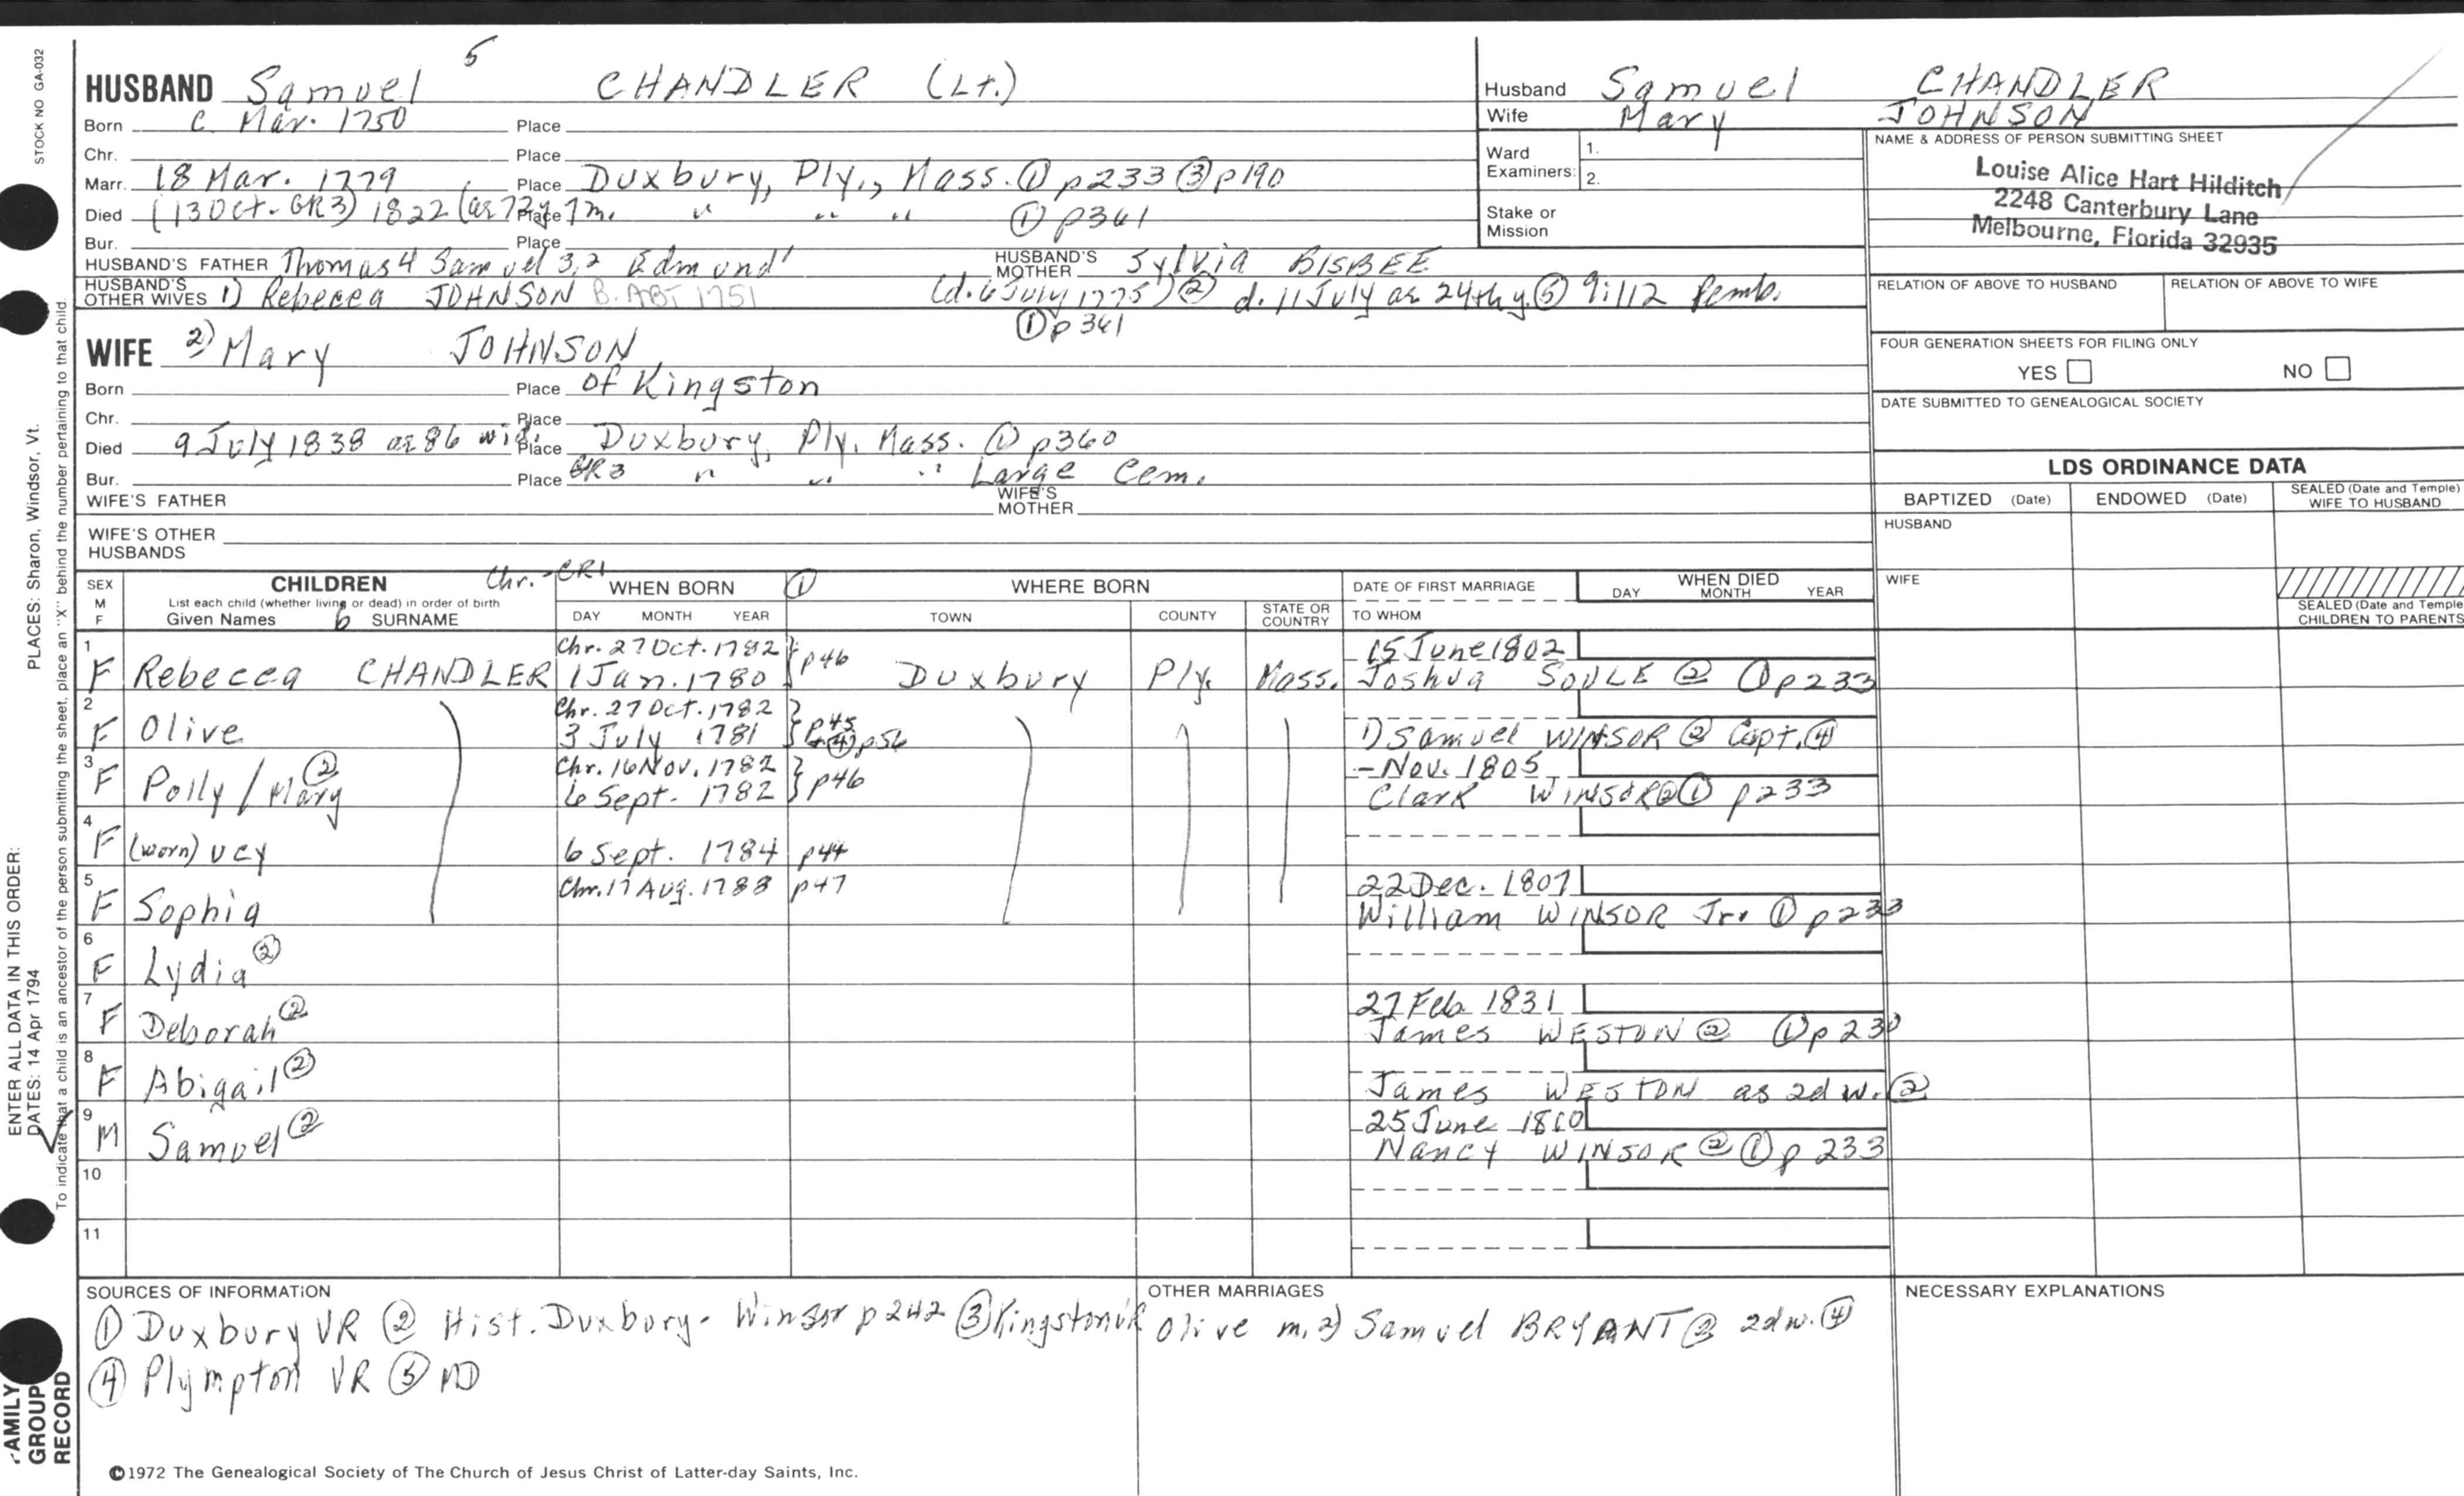 STOCK NO GA-032
PLACES: Sharon, Windsor, Vt.
ENTER ALL DATA IN THIS ORDER:
DATES: 14 Apr 1794
To indicate that a child is an ancestor of the person submitting the sheet, place an "X" behind the number pertaining to that child.
FAMILY
GROUP
RECORD
HUSBAND Samuel 5 CHANDLER (Lt.)
Born c. Mar. 1750 Place
Chr. Place
Marr. 18 Mar. 1779 Place Duxbury, Ply., Mass. ① p233 ③ p190
Died (13 Oct. GR3) 1822 (ae 72y 7m. Place " " " ① p361
Bur. Place
HUSBAND'S FATHER Thomas 4 Samuel 3,2 Edmund 1 HUSBAND'S MOTHER Sylvia BISBEE
HUSBAND'S OTHER WIVES 1) Rebecca JOHNSON B. ABT 1751 (d. 6 July 1775) ② d. 11 July ae 24th y. ⑤ 9:112 Pemb.
① p361
WIFE 2) Mary JOHNSON
Born Place of Kingston
Chr. Place
Died 9 July 1838 ae 86 wid. Place Duxbury, Ply. Mass. ① p360
Bur. Place GR3 " " " Large Cem.
WIFE'S FATHER WIFE'S MOTHER
WIFE'S OTHER HUSBANDS
Husband Samuel CHANDLER
Wife Mary JOHNSON
Ward Examiners: 1.
2.
Stake or Mission
NAME & ADDRESS OF PERSON SUBMITTING SHEET
Louise Alice Hart Hilditch
2248 Canterbury Lane
Melbourne, Florida 32935
RELATION OF ABOVE TO HUSBAND RELATION OF ABOVE TO WIFE
FOUR GENERATION SHEETS FOR FILING ONLY
YES NO
DATE SUBMITTED TO GENEALOGICAL SOCIETY
LDS ORDINANCE DATA
BAPTIZED (Date) ENDOWED (Date) SEALED (Date and Temple) WIFE TO HUSBAND
HUSBAND
WIFE
SEALED (Date and Temple) CHILDREN TO PARENTS
SEX M F CHILDREN Chr. - CR1 WHEN BORN ① WHERE BORN DATE OF FIRST MARRIAGE WHEN DIED
List each child (whether living or dead) in order of birth
Given Names 6 SURNAME DAY MONTH YEAR TOWN COUNTY STATE OR COUNTRY TO WHOM DAY MONTH YEAR
1 Chr. 27 Oct. 1782 15 June 1802
F Rebecca CHANDLER 1 Jan. 1780 p46 Duxbury Ply. Mass. Joshua SOULE ② ① p233
2 Chr. 27 Oct. 1782
F Olive 3 July 1781 p45 + ④ p56 1) Samuel WINSOR ② Capt. ④
3 Chr. 16 Nov. 1782 - Nov. 1805
F Polly / Mary ② 6 Sept. 1782 p46 Clark WINSOR ② ① p233
4
F (worn) ucy 6 Sept. 1784 p44
5 Chr. 17 Aug. 1788 p47 22 Dec. 1807
F Sophia William WINSOR Jr. ① p233
6
F Lydia ②
7 27 Feb 1831
F Deborah ② James WESTON ② ① p230
8
F Abigail ② James WESTON as 2d w. ②
9 25 June 1810
M Samuel ② Nancy WINSOR ② ① p233
10
11
SOURCES OF INFORMATION
① Duxbury VR ② Hist. Duxbury - Winsor p242 ③ Kingston VR
④ Plympton VR ⑤ MD
OTHER MARRIAGES
Olive m. 2) Samuel BRYANT ② 2d w. ④
NECESSARY EXPLANATIONS
©1972 The Genealogical Society of The Church of Jesus Christ of Latter-day Saints, Inc.